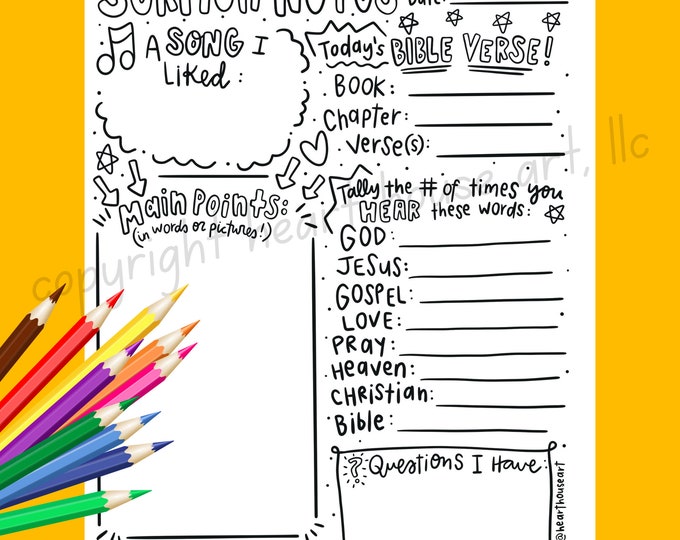 SERMON NOTES
Date:
A SONG I
Liked:
Today's BIBLE VERSE!
BOOK:
Chapter:
Verse(s):
Main Points:
(in words or pictures!)
Tally the # of times you
HEAR these words:
GOD:
JESUS:
GOSPEL:
LOVE:
PRAY:
Heaven:
CHRISTIAN:
Bible:
? Questions I Have:
@hearthouseart
copyright heart house art, llc